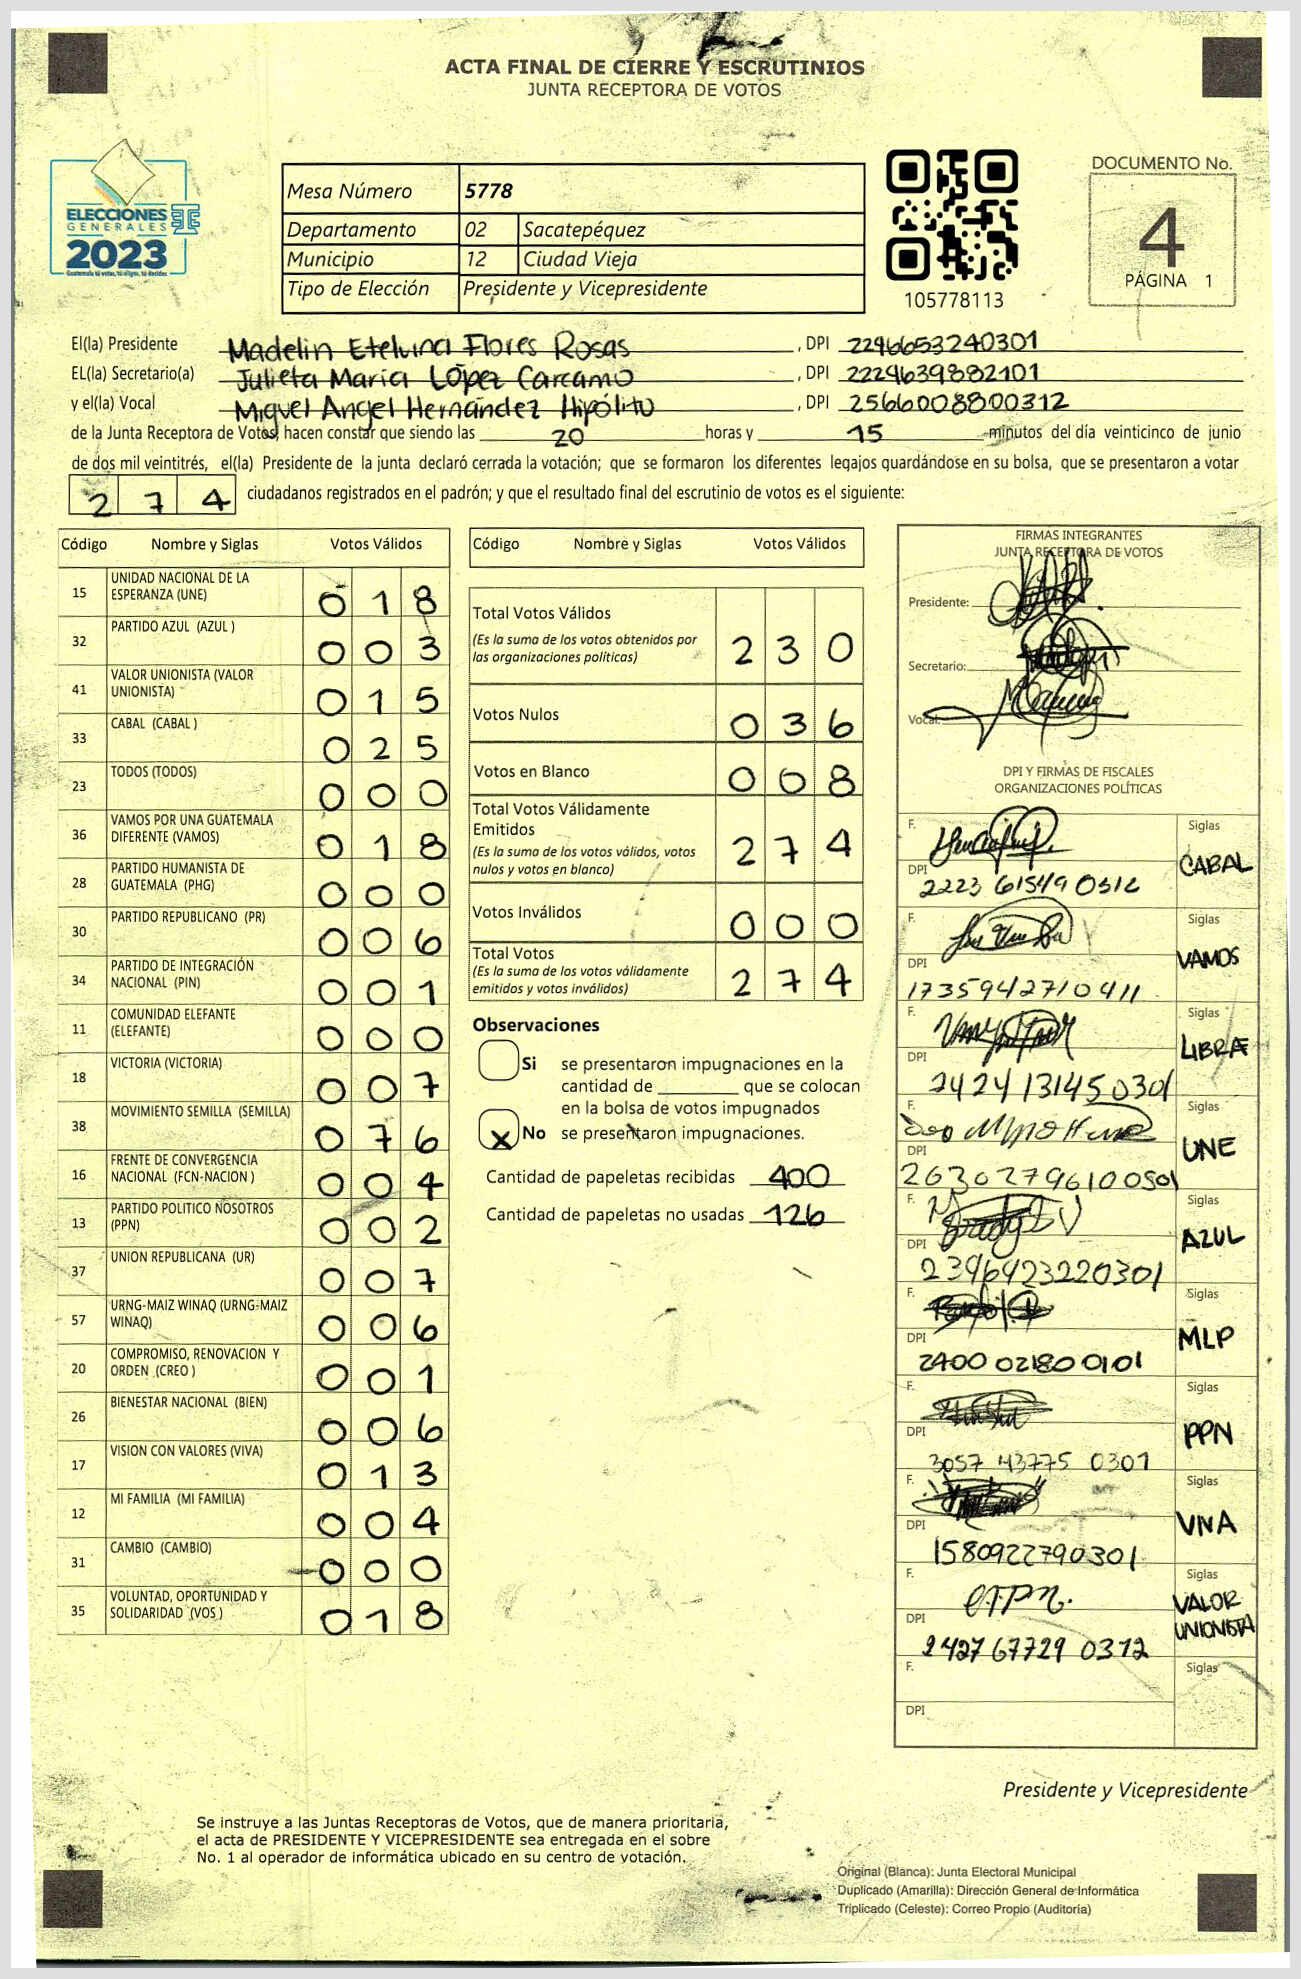 ACTA FINAL DE CIERRE Y ESCRUTINIOS
JUNTA RECEPTORA DE VOTOS
ELECCIONES
GENERALES
2023
Guatemala tú votas, tú eliges, tú decides
Mesa Número 5778
Departamento 02 Sacatepéquez
Municipio 12 Ciudad Vieja
Tipo de Elección Presidente y Vicepresidente
105778113
DOCUMENTO No.
4
PÁGINA 1
El(la) Presidente Madelin Etelvina Flores Rosas, DPI 2296653240301
EL(la) Secretario(a) Julieta María López Carcamo, DPI 2224639882101
y el(la) Vocal Miguel Angel Hernández Hipólito, DPI 2566008800312
de la Junta Receptora de Votos, hacen constar que siendo las 20 horas y 15 minutos del día veinticinco de junio
de dos mil veintitrés, el(la) Presidente de la junta declaró cerrada la votación; que se formaron los diferentes legajos quardándose en su bolsa, que se presentaron a votar
274 ciudadanos registrados en el padrón; y que el resultado final del escrutinio de votos es el siguiente:
Código Nombre y Siglas Votos Válidos
15 UNIDAD NACIONAL DE LA ESPERANZA (UNE) 018
32 PARTIDO AZUL (AZUL ) 003
41 VALOR UNIONISTA (VALOR UNIONISTA) 015
33 CABAL (CABAL ) 025
23 TODOS (TODOS) 000
36 VAMOS POR UNA GUATEMALA DIFERENTE (VAMOS) 018
28 PARTIDO HUMANISTA DE GUATEMALA (PHG) 000
30 PARTIDO REPUBLICANO (PR) 006
34 PARTIDO DE INTEGRACIÓN NACIONAL (PIN) 001
11 COMUNIDAD ELEFANTE (ELEFANTE) 000
18 VICTORIA (VICTORIA) 007
38 MOVIMIENTO SEMILLA (SEMILLA) 076
16 FRENTE DE CONVERGENCIA NACIONAL (FCN-NACION ) 004
13 PARTIDO POLITICO NOSOTROS (PPN) 002
37 UNION REPUBLICANA (UR) 007
57 URNG-MAIZ WINAQ (URNG-MAIZ WINAQ) 006
20 COMPROMISO, RENOVACION Y ORDEN (CREO ) 001
26 BIENESTAR NACIONAL (BIEN) 006
17 VISION CON VALORES (VIVA) 013
12 MI FAMILIA (MI FAMILIA) 004
31 CAMBIO (CAMBIO) 000
35 VOLUNTAD, OPORTUNIDAD Y SOLIDARIDAD (VOS ) 018
Código Nombre y Siglas Votos Válidos
Total Votos Válidos 230
(Es la suma de los votos obtenidos por
las organizaciones políticas)
Votos Nulos 036
Votos en Blanco 008
Total Votos Válidamente
Emitidos 274
(Es la suma de los votos válidos, votos
nulos y votos en blanco)
Votos Inválidos 000
Total Votos 274
(Es la suma de los votos válidamente
emitidos y votos inválidos)
Observaciones
Si se presentaron impugnaciones en la
cantidad de ________ que se colocan
en la bolsa de votos impugnados
X No se presentaron impugnaciones.
Cantidad de papeletas recibidas 400
Cantidad de papeletas no usadas 126
FIRMAS INTEGRANTES
JUNTA RECEPTORA DE VOTOS
Presidente:
Secretario:
Vocal:
DPI Y FIRMAS DE FISCALES
ORGANIZACIONES POLÍTICAS
F. Siglas
DPI 2223 61549 0312 CABAL
F. Siglas
DPI 1735942710411 VAMOS
F. Siglas
DPI 2424 13145 0301 LIBRE
F. Siglas
DPI 26302796100501 UNE
F. Siglas
DPI 2396923220301 AZUL
F. Siglas
DPI 2400 02180 0101 MLP
F. Siglas
DPI 3057 43775 0301 PPN
F. Siglas
DPI 1580922790301 VIVA
F. Siglas
DPI 2427 67729 0312 VALOR UNIONISTA
F. Siglas
DPI
Presidente y Vicepresidente
Se instruye a las Juntas Receptoras de Votos, que de manera prioritaria,
el acta de PRESIDENTE Y VICEPRESIDENTE sea entregada en el sobre
No. 1 al operador de informática ubicado en su centro de votación.
Original (Blanca): Junta Electoral Municipal
Duplicado (Amarilla): Dirección General de Informática
Triplicado (Celeste): Correo Propio (Auditoría)